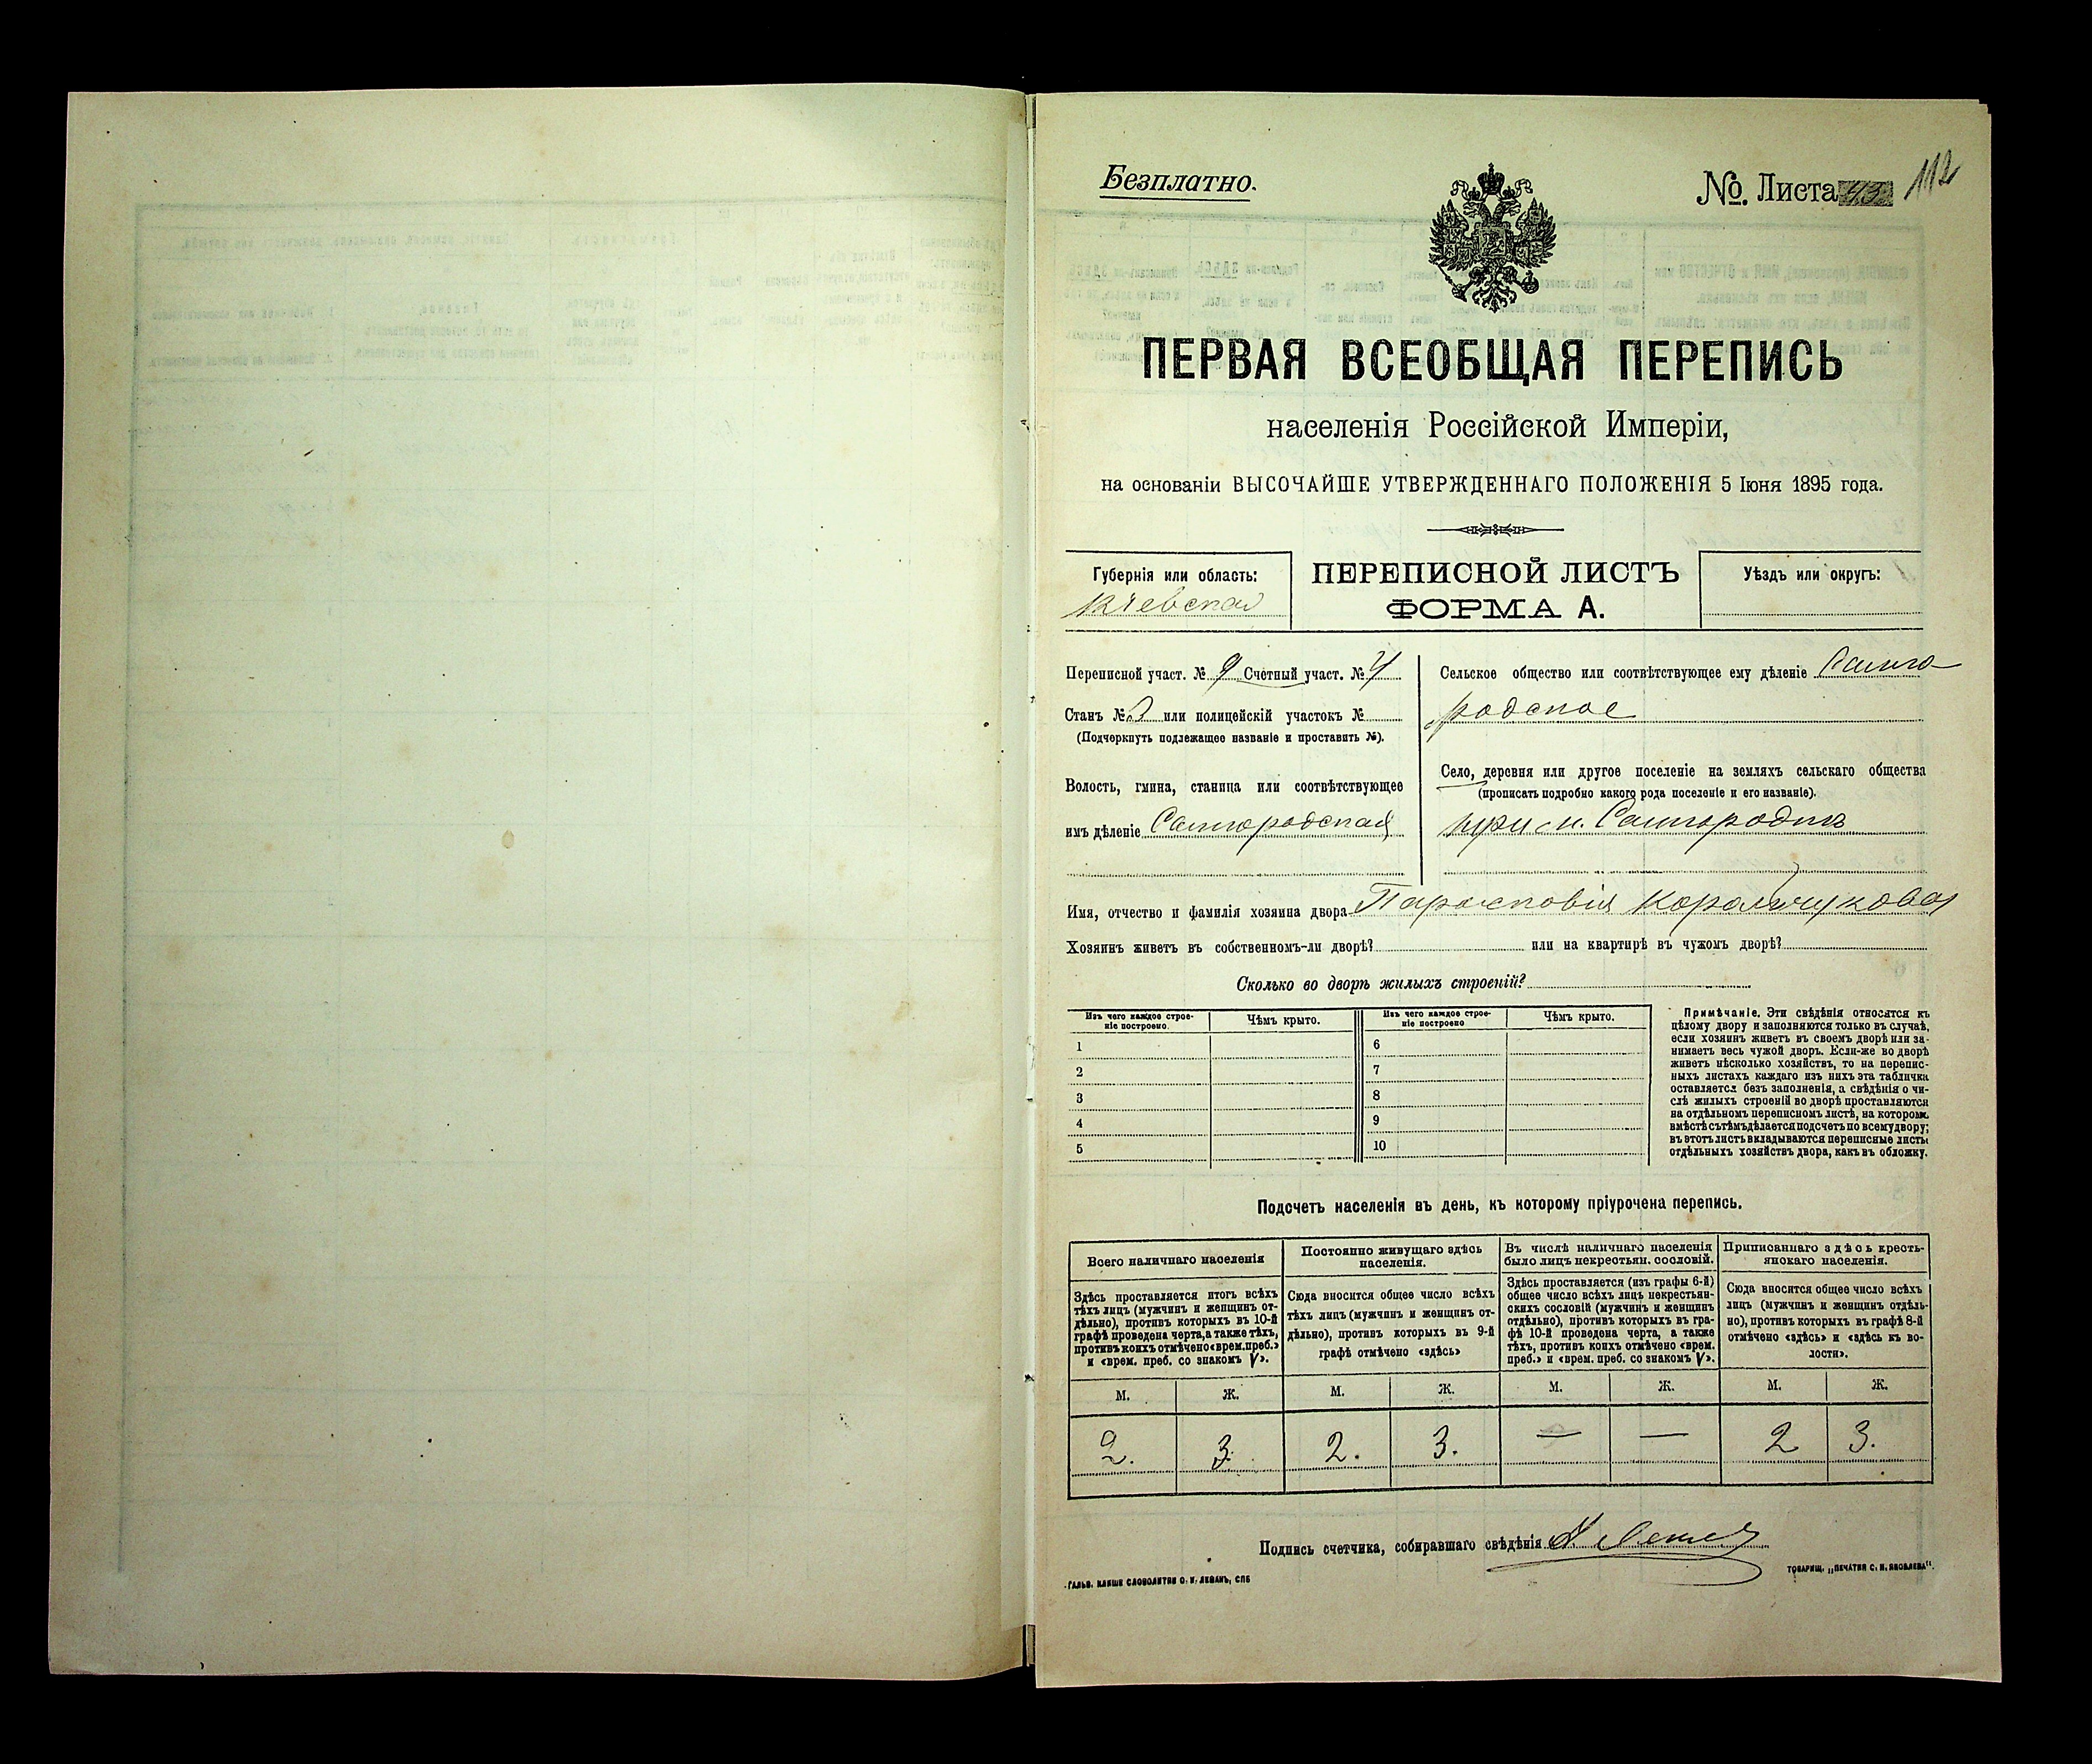 Безплатно.
№ Листа 43 112
ПЕРВАЯ ВСЕОБЩАЯ ПЕРЕПИСЬ
населенія Россійской Имперіи,
на основаніи ВЫСОЧАЙШЕ УТВЕРЖДЕННАГО ПОЛОЖЕНІЯ 5 Іюня 1895 года.
Губернія или область:
Кіевская
ПЕРЕПИСНОЙ ЛИСТЪ
ФОРМА А.
Уѣздъ или округъ:
Переписной участ. № 9 Счетный участ. № 4
Станъ № или полицейскій участокъ №
(Подчеркнуть подлежащее названіе и проставить №).
Волость, гмина, станица или соотвѣтствующее
имъ дѣленіе Самгородская
Сельское общество или соотвѣтствующее ему дѣленіе Самго-
родское
Село, деревня или другое поселеніе на земляхъ сельскаго общества
(прописать подробно какого рода поселеніе и его названіе).
при м. Самгородкѣ
Имя, отчество и фамилія хозяина двора Парасковія Корольчукова
Хозяинъ живетъ въ собственномъ-ли дворѣ? или на квартирѣ въ чужомъ дворѣ?
Сколько во дворѣ жилыхъ строеній?
Изъ чего каждое строе-
ніе построено.
Чѣмъ крыто.
Изъ чего каждое строе-
ніе построено
Чѣмъ крыто.
1 6
2 7
3 8
4 9
5 10
Примѣчаніе. Эти свѣдѣнія относятся къ
цѣлому двору и заполняются только въ случаѣ,
если хозяинъ живетъ въ своемъ дворѣ или за-
нимаетъ весь чужой дворъ. Если-же во дворѣ
живетъ нѣсколько хозяйствъ, то на перепис-
ныхъ листахъ каждаго изъ нихъ эта табличка
оставляется безъ заполненія, а свѣдѣнія о чи-
слѣ жилыхъ строеній во дворѣ проставляются
на отдѣльномъ переписномъ листѣ, на которомъ
вмѣстѣ съ тѣмъ дѣлается подсчетъ по всему двору;
въ этотъ листъ вкладываются переписные листы
отдѣльныхъ хозяйствъ двора, какъ въ обложку.
Подсчетъ населенія въ день, къ которому пріурочена перепись.
Всего наличнаго населенія
Здѣсь проставляется итогъ всѣхъ
тѣхъ лицъ (мужчинъ и женщинъ от-
дѣльно), противъ которыхъ въ 10-й
графѣ проведена черта, а также тѣхъ,
противъ коихъ отмѣчено «врем. преб.»
и «врем. преб. со знакомъ V».
Постоянно живущаго здѣсь
населенія.
Сюда вносится общее число всѣхъ
тѣхъ лицъ (мужчинъ и женщинъ от-
дѣльно), противъ которыхъ въ 9-й
графѣ отмѣчено «здѣсь»
Въ числѣ наличнаго населенія
было лицъ некрестьян. сословій.
Здѣсь проставляется (изъ графы 6-й)
общее число всѣхъ лицъ некрестьян-
скихъ сословій (мужчинъ и женщинъ
отдѣльно), противъ которыхъ въ гра-
фѣ 10-й проведена черта, а также
тѣхъ, противъ коихъ отмѣчено «врем.
преб.» и «врем. преб. со знакомъ V».
Приписаннаго здѣсь кресть-
янскаго населенія.
Сюда вносится общее число всѣхъ
лицъ (мужчинъ и женщинъ отдѣль-
но), противъ которыхъ въ графѣ 8-й
отмѣчено «здѣсь» и «здѣсь къ во-
лости».
М. Ж. М. Ж. М. Ж. М. Ж.
2. 3. 2. 3. — — 2 3.
Подпись счетчика, собиравшаго свѣдѣнія
ГАЛЬВ. КЛИШЕ СЛОВОЛИТНИ О. И. ЛЕМАНЪ, СПБ
ТОВАРИЩ. „ПЕЧАТНЯ С. П. ЯКОВЛЕВА“.